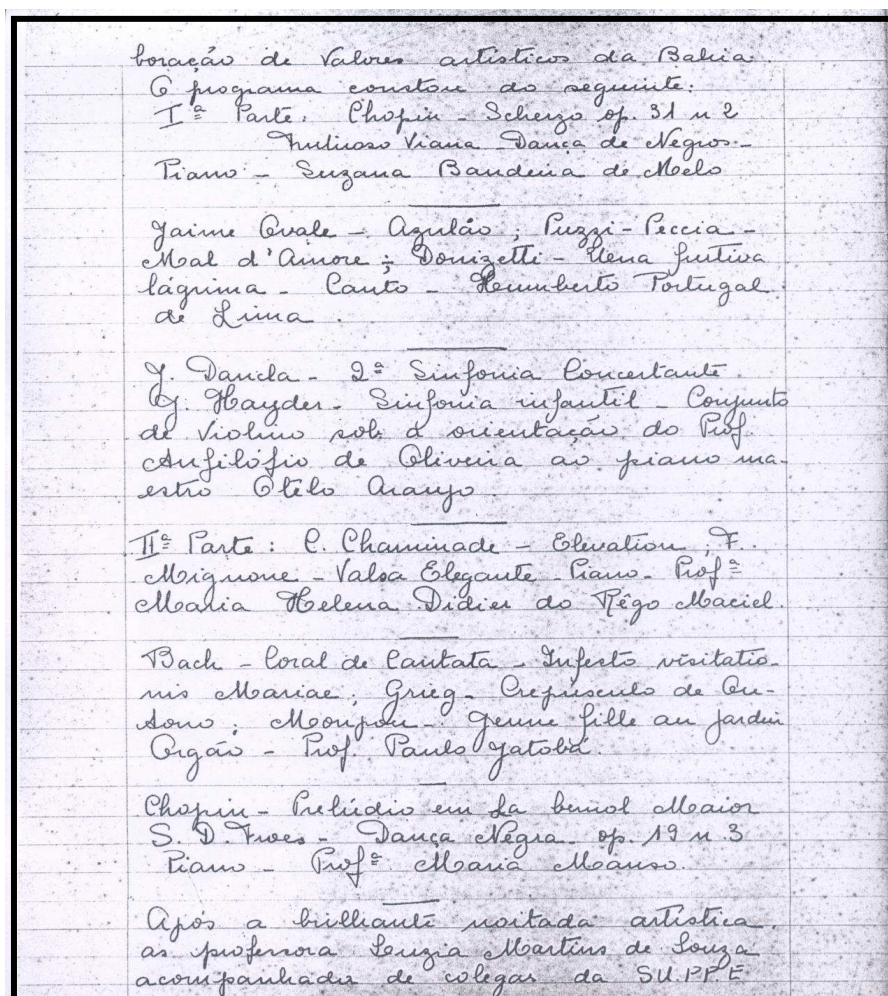 boração de Valores artísticos da Bahia.
O programa constou do seguinte:
Iª Parte: Chopin - Scherzo op. 31 n 2
Frutuoso Viana - Dança de Negros -
Piano - Suzana Bandeira de Melo
Jaime Ovale - Azulão ; Puzzi-Peccia -
Mal d'Amore ; Donizetti - Uena furtiva
lágrima - Canto - Humberto Portugal
de Lima .
J. Dancla - 2ª Sinfonia Concertante.
J. Hayder - Sinfonia infantil - Conjunto
de Violino sob a orientação do Prof.
Anfilófio de Oliveira ao piano ma-
estro Otelo Araujo.
IIª Parte : C. Chaminade - Elevation, F.
Mignone - Valsa Elegante - Piano - Profª
Maria Helena Didier do Rêgo Maciel.
Bach - Coral de Cantata - Infesto visitatio-
nis Mariae ; Grieg - Crepúsculo de Ou-
tono ; Moupou - Jenne fille au jardin
Orgão - Prof. Paulo Jatobá.
Chopin - Prelúdio em La bemol Maior
S. D. Froes - Dança Negra - op. 19 n 3
Piano - Profª Maria Manso.
Após a brilhante noitada artística
as professora Luzia Martins de Souza
acompanhada de colegas da SU.PP.E